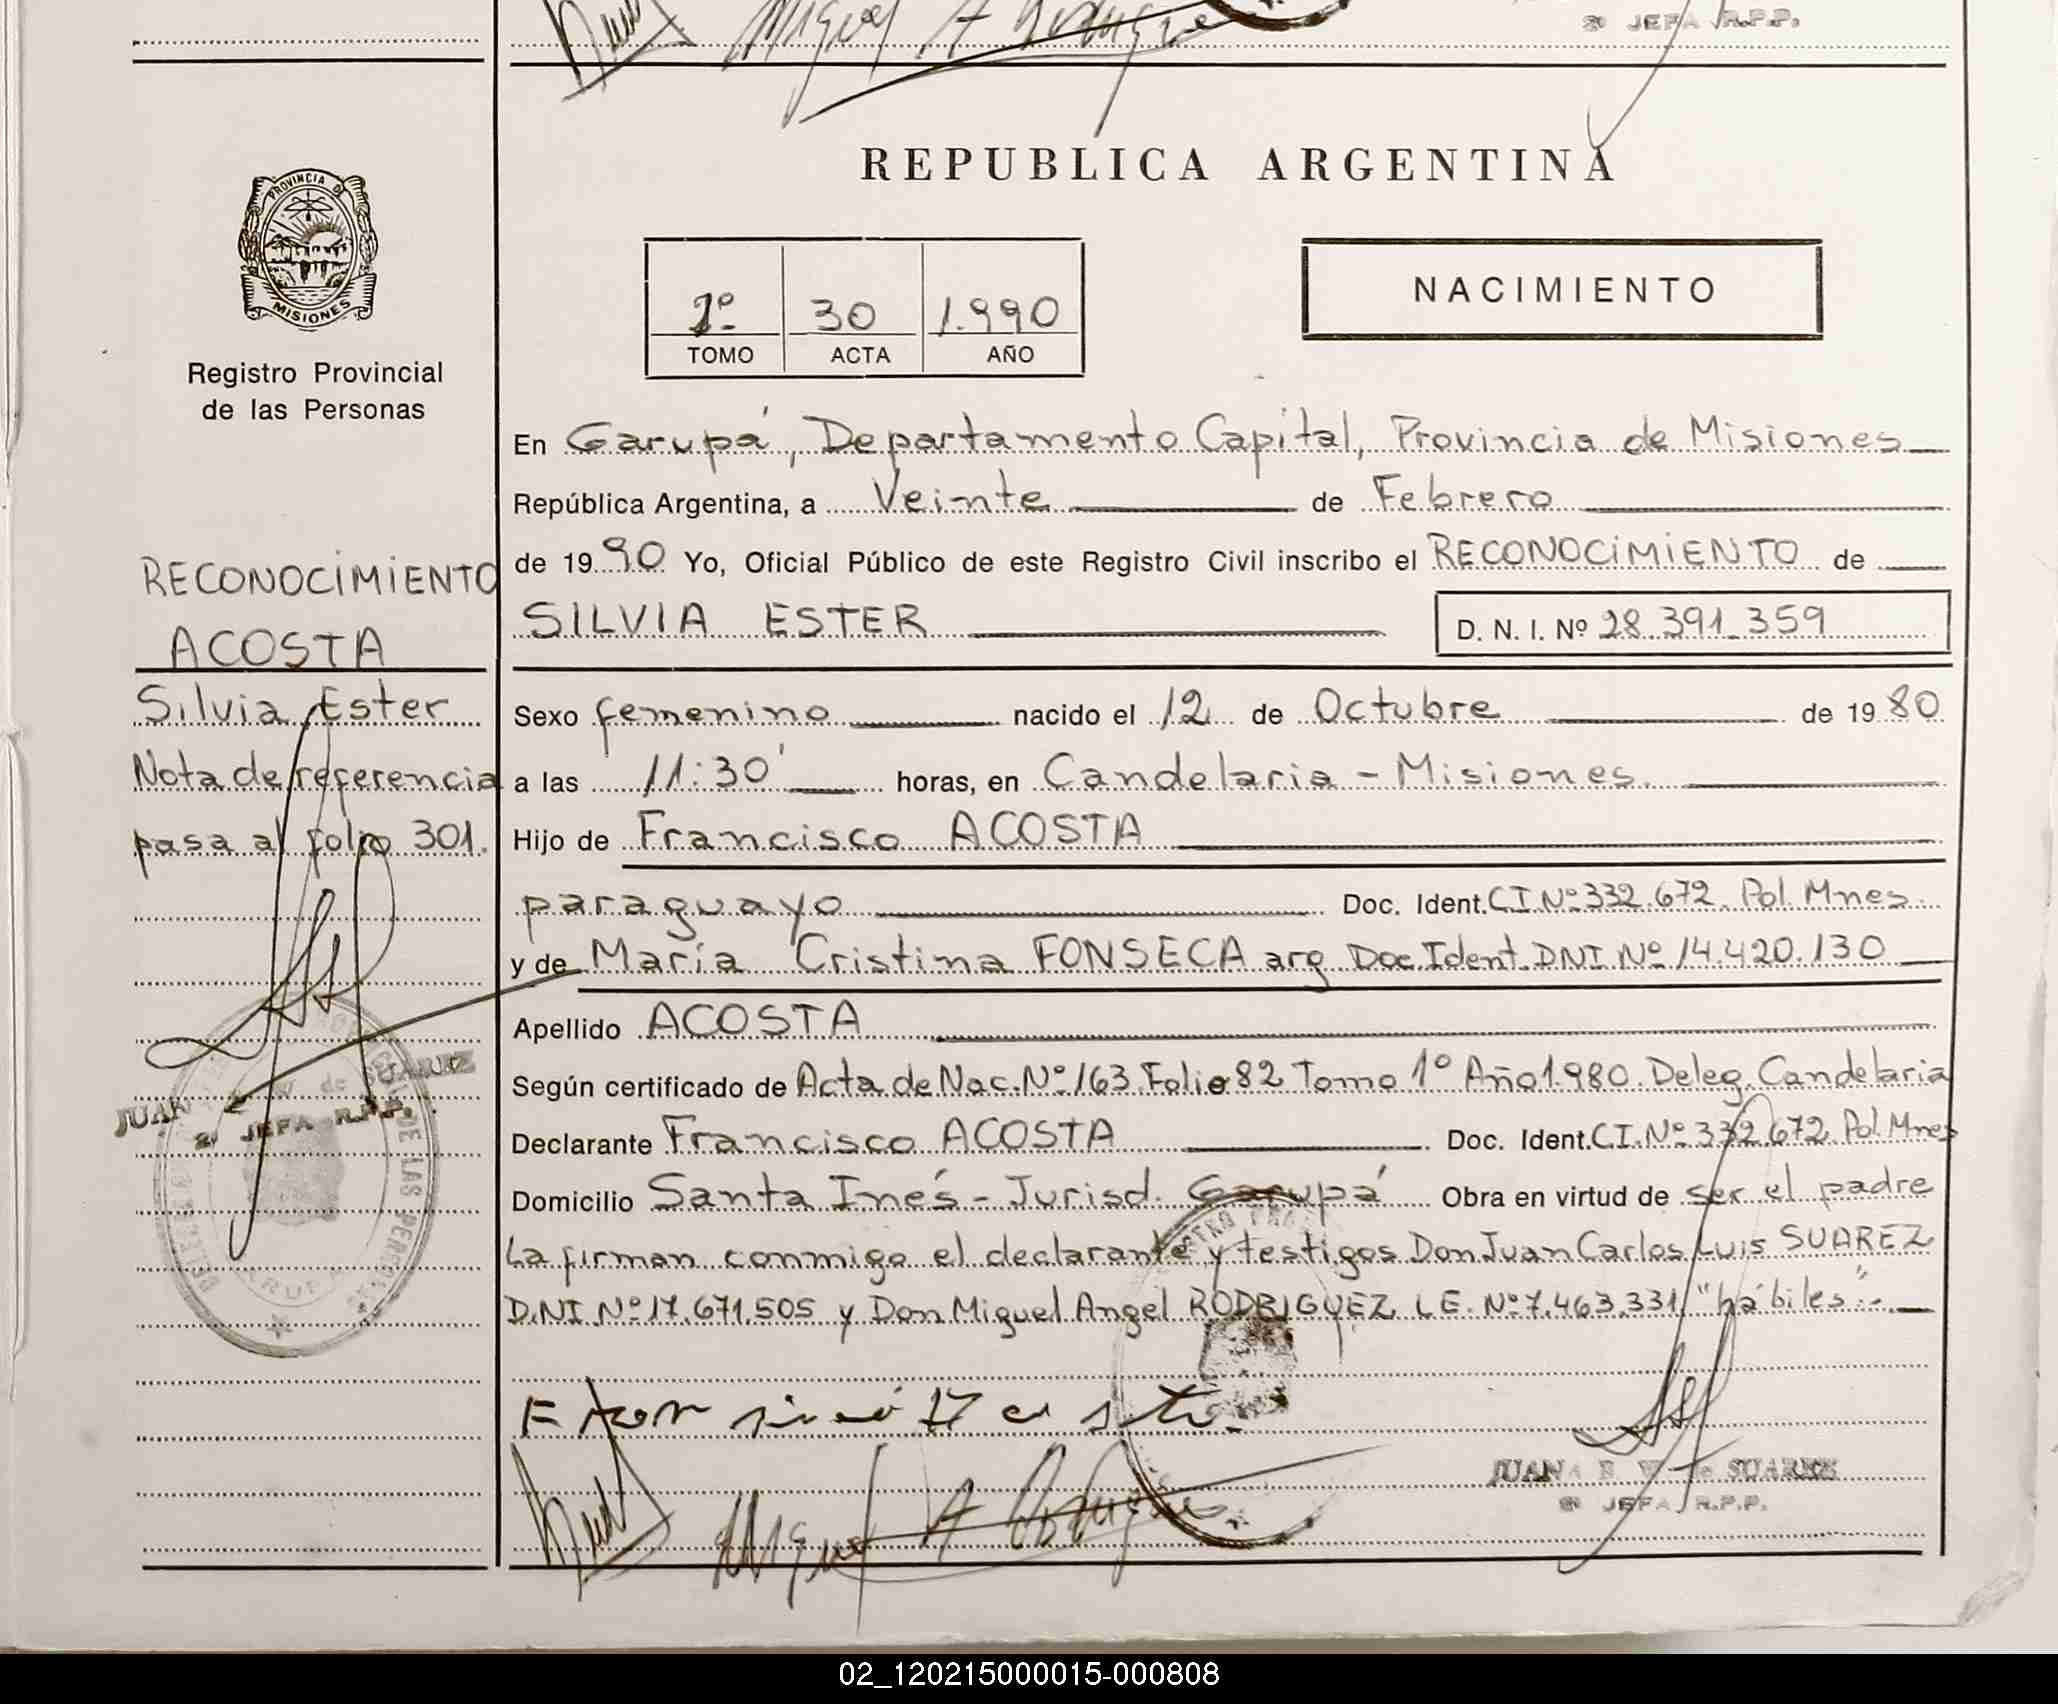 Miguel A Rodrigue
2º JEFA R.P.P.
REPUBLICA ARGENTINA
PROVINCIA DE
MISIONES
Registro Provincial
de las Personas
1º 30 1.990
TOMO ACTA AÑO
NACIMIENTO
En Garupá, Departamento Capital, Provincia de Misiones
República Argentina, a Veinte de Febrero
de 1990 Yo, Oficial Público de este Registro Civil inscribo el RECONOCIMIENTO de
SILVIA ESTER D. N. I. Nº 28.391.359
RECONOCIMIENTO
ACOSTA
Silvia Ester
Nota de referencia
pasa al folio 301.
JUANA E. W. de SUAREZ
2º JEFA R.P.P.
DE LAS PERSONAS
GARUPA
Sexo femenino nacido el 12 de Octubre de 1980
a las 11:30' horas, en Candelaria - Misiones.
Hijo de Francisco ACOSTA
paraguayo Doc. Ident. CI Nº 332.672 Pol. Mnes.
y de María Cristina FONSECA arg Doc Ident. DNI Nº 14.420.130
Apellido ACOSTA
Según certificado de Acta de Nac. Nº 163 Folio 82 Tomo 1º Año 1.980 Deleg. Candelaria
Declarante Francisco ACOSTA Doc. Ident. CI. Nº 332.672 Pol. Mnes
Domicilio Santa Inés - Jurisd. Garupá Obra en virtud de ser el padre
La firman conmigo el declarante y testigos Don Juan Carlos Luis SUAREZ
D.NI Nº 17.671.505 y Don Miguel Angel RODRIGUEZ L.E. Nº 7.463.331 "hábiles".-
Miguel A Rodrigue
JUANA E. W. de SUAREZ
2º JEFA R.P.P.
02_120215000015-000808